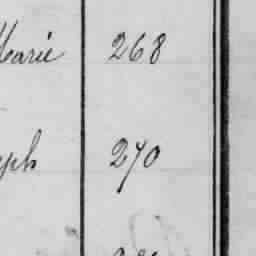 Marie 268
yph 270